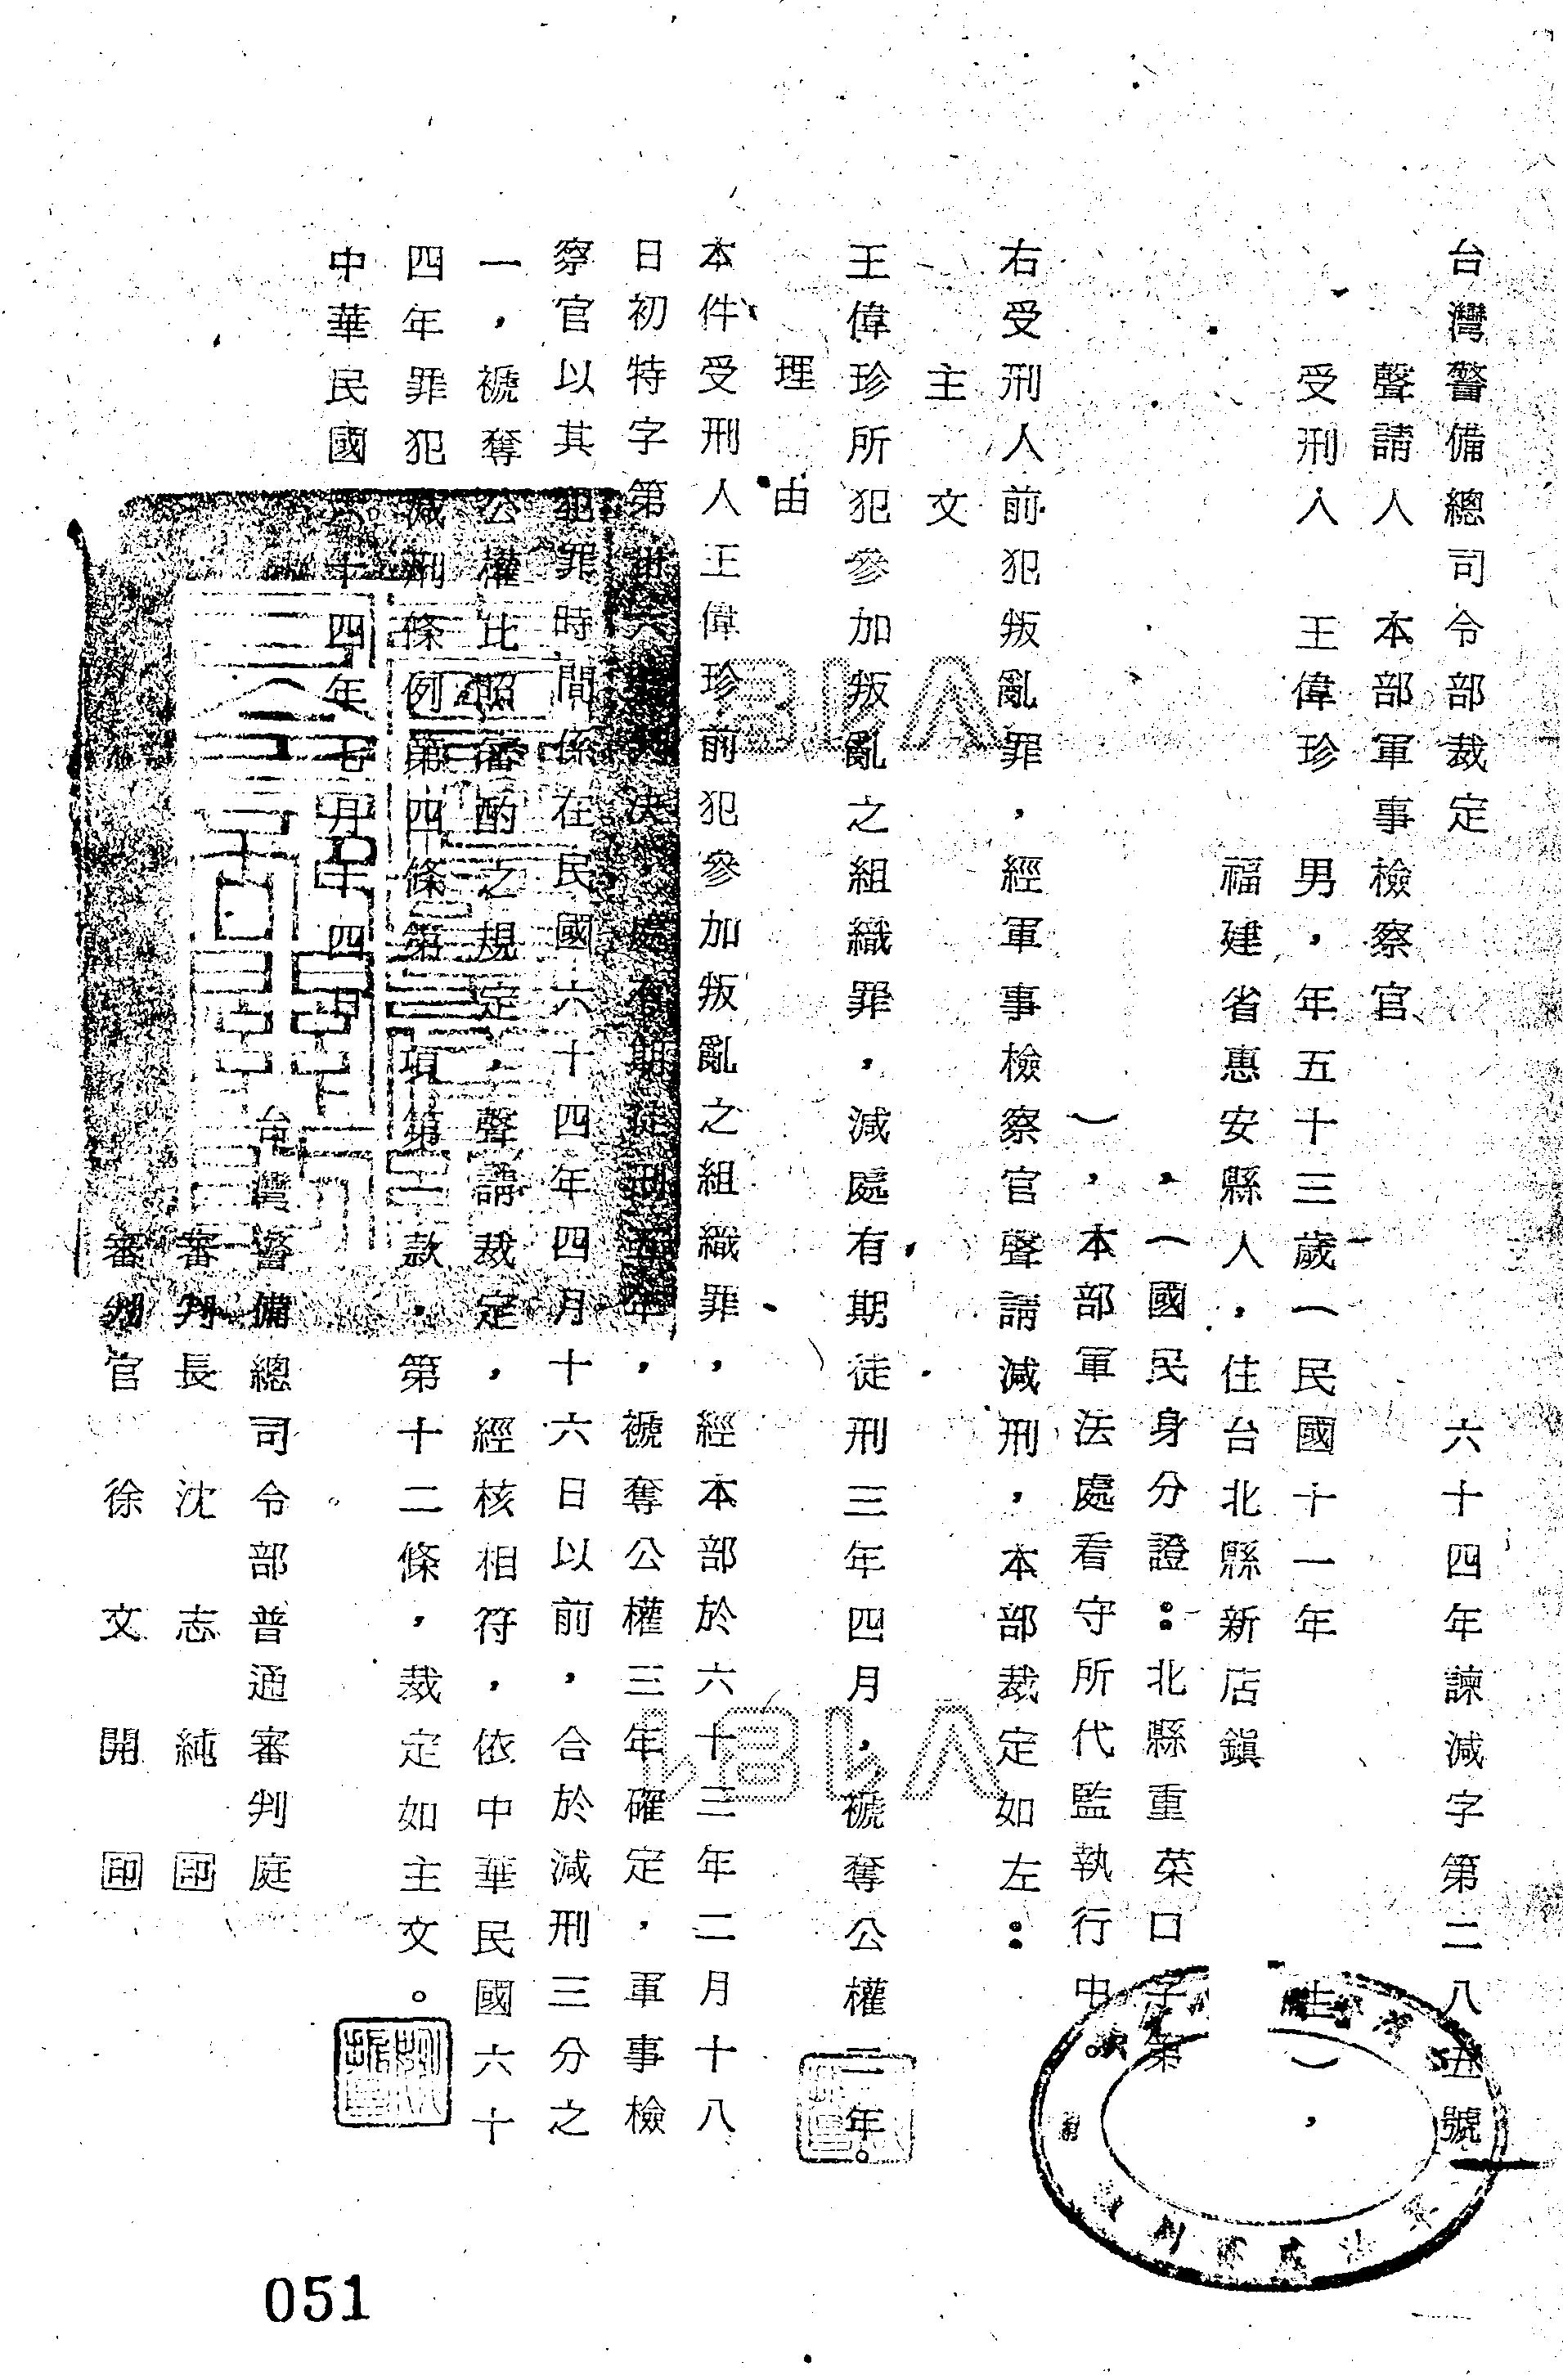 台灣警備總司令部裁定　六十四年諫減字第二八五號
聲請人　本部軍事檢察官
受刑人　王偉珍　男，年五十三歲（民國十一年　生），
福建省惠安縣人，住台北縣新店鎮
，（國民身分證：北縣重菜口字第
），本部軍法處看守所代監執行中。
右受刑人前犯叛亂罪，經軍事檢察官聲請減刑，本部裁定如左：
主文
王偉珍所犯參加叛亂之組織罪，減處有期徒刑三年四月，褫奪公權二年。
理由
本件受刑人王偉珍前犯參加叛亂之組織罪，經本部於六十三年二月十八
日初特字第卅六號判決，處有期徒刑五年，褫奪公權三年確定，軍事檢
察官以其犯罪時間係在民國六十四年四月十六日以前，合於減刑三分之
一，褫奪公權比照審酌之規定，聲請裁定，經核相符，依中華民國六十
四年罪犯減刑條例第四條第　項第二款，第十二條，裁定如主文。
中華民國六十四年七月十四日
台灣警備總司令部普通審判庭
審判長　沈志純　印
審判官　徐文開　印
051